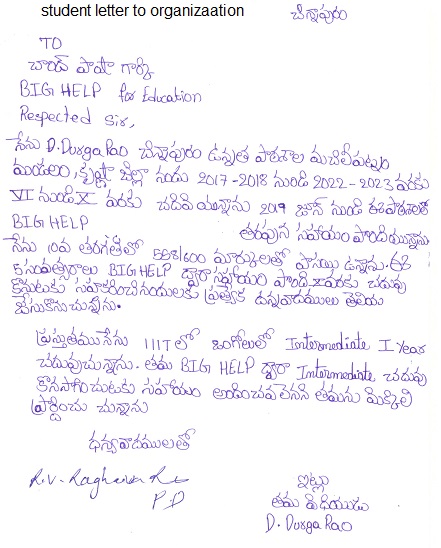 student letter to organizaation
చిన్నాపురం
TO
చాంద్ పాషా గార్కి
BIG HELP for Education
Respected Sir,
నేను D. Durga Rao చిన్నాపురం ఉన్నత పాఠశాల మచిలీపట్నం
మండలం, కృష్ణా జిల్లా నందు 2017-2018 నుండి 2022-2023 వరకు
VI నుండి X వరకు చదివియున్నాను 2019 జూన్ నుండి ఈపాఠశాలలో
BIG HELP తరపున సహాయం పొందియున్నాను
నేను 10వ తరగతిలో 558/600 మార్కులతో పాసయి ఉన్నాను. ఈ
కసంవత్సరాలు BIG HELP ద్వారా సహాయం పొంది X వరకు చదువు
కొనుటకు సహకరించినందులకు ప్రత్యేక ధన్యవాదములు తెలియ
చేసుకొనుచున్నాను.
ప్రస్తుతము నేను IIIT లో ఒంగోలులో Intermediate I Year
చదువుచున్నాను. తమ BIG HELP ద్వారా Intermediate చదువు
కొనసాగించుటకు సహాయం అందించవలెనని తమను మిక్కిలి
ప్రార్థించు చున్నాను
ధన్యవాదములతో
R.V. Raghava R
P.D
ఇట్లు
తమ విధేయుడు
D. Durga Rao